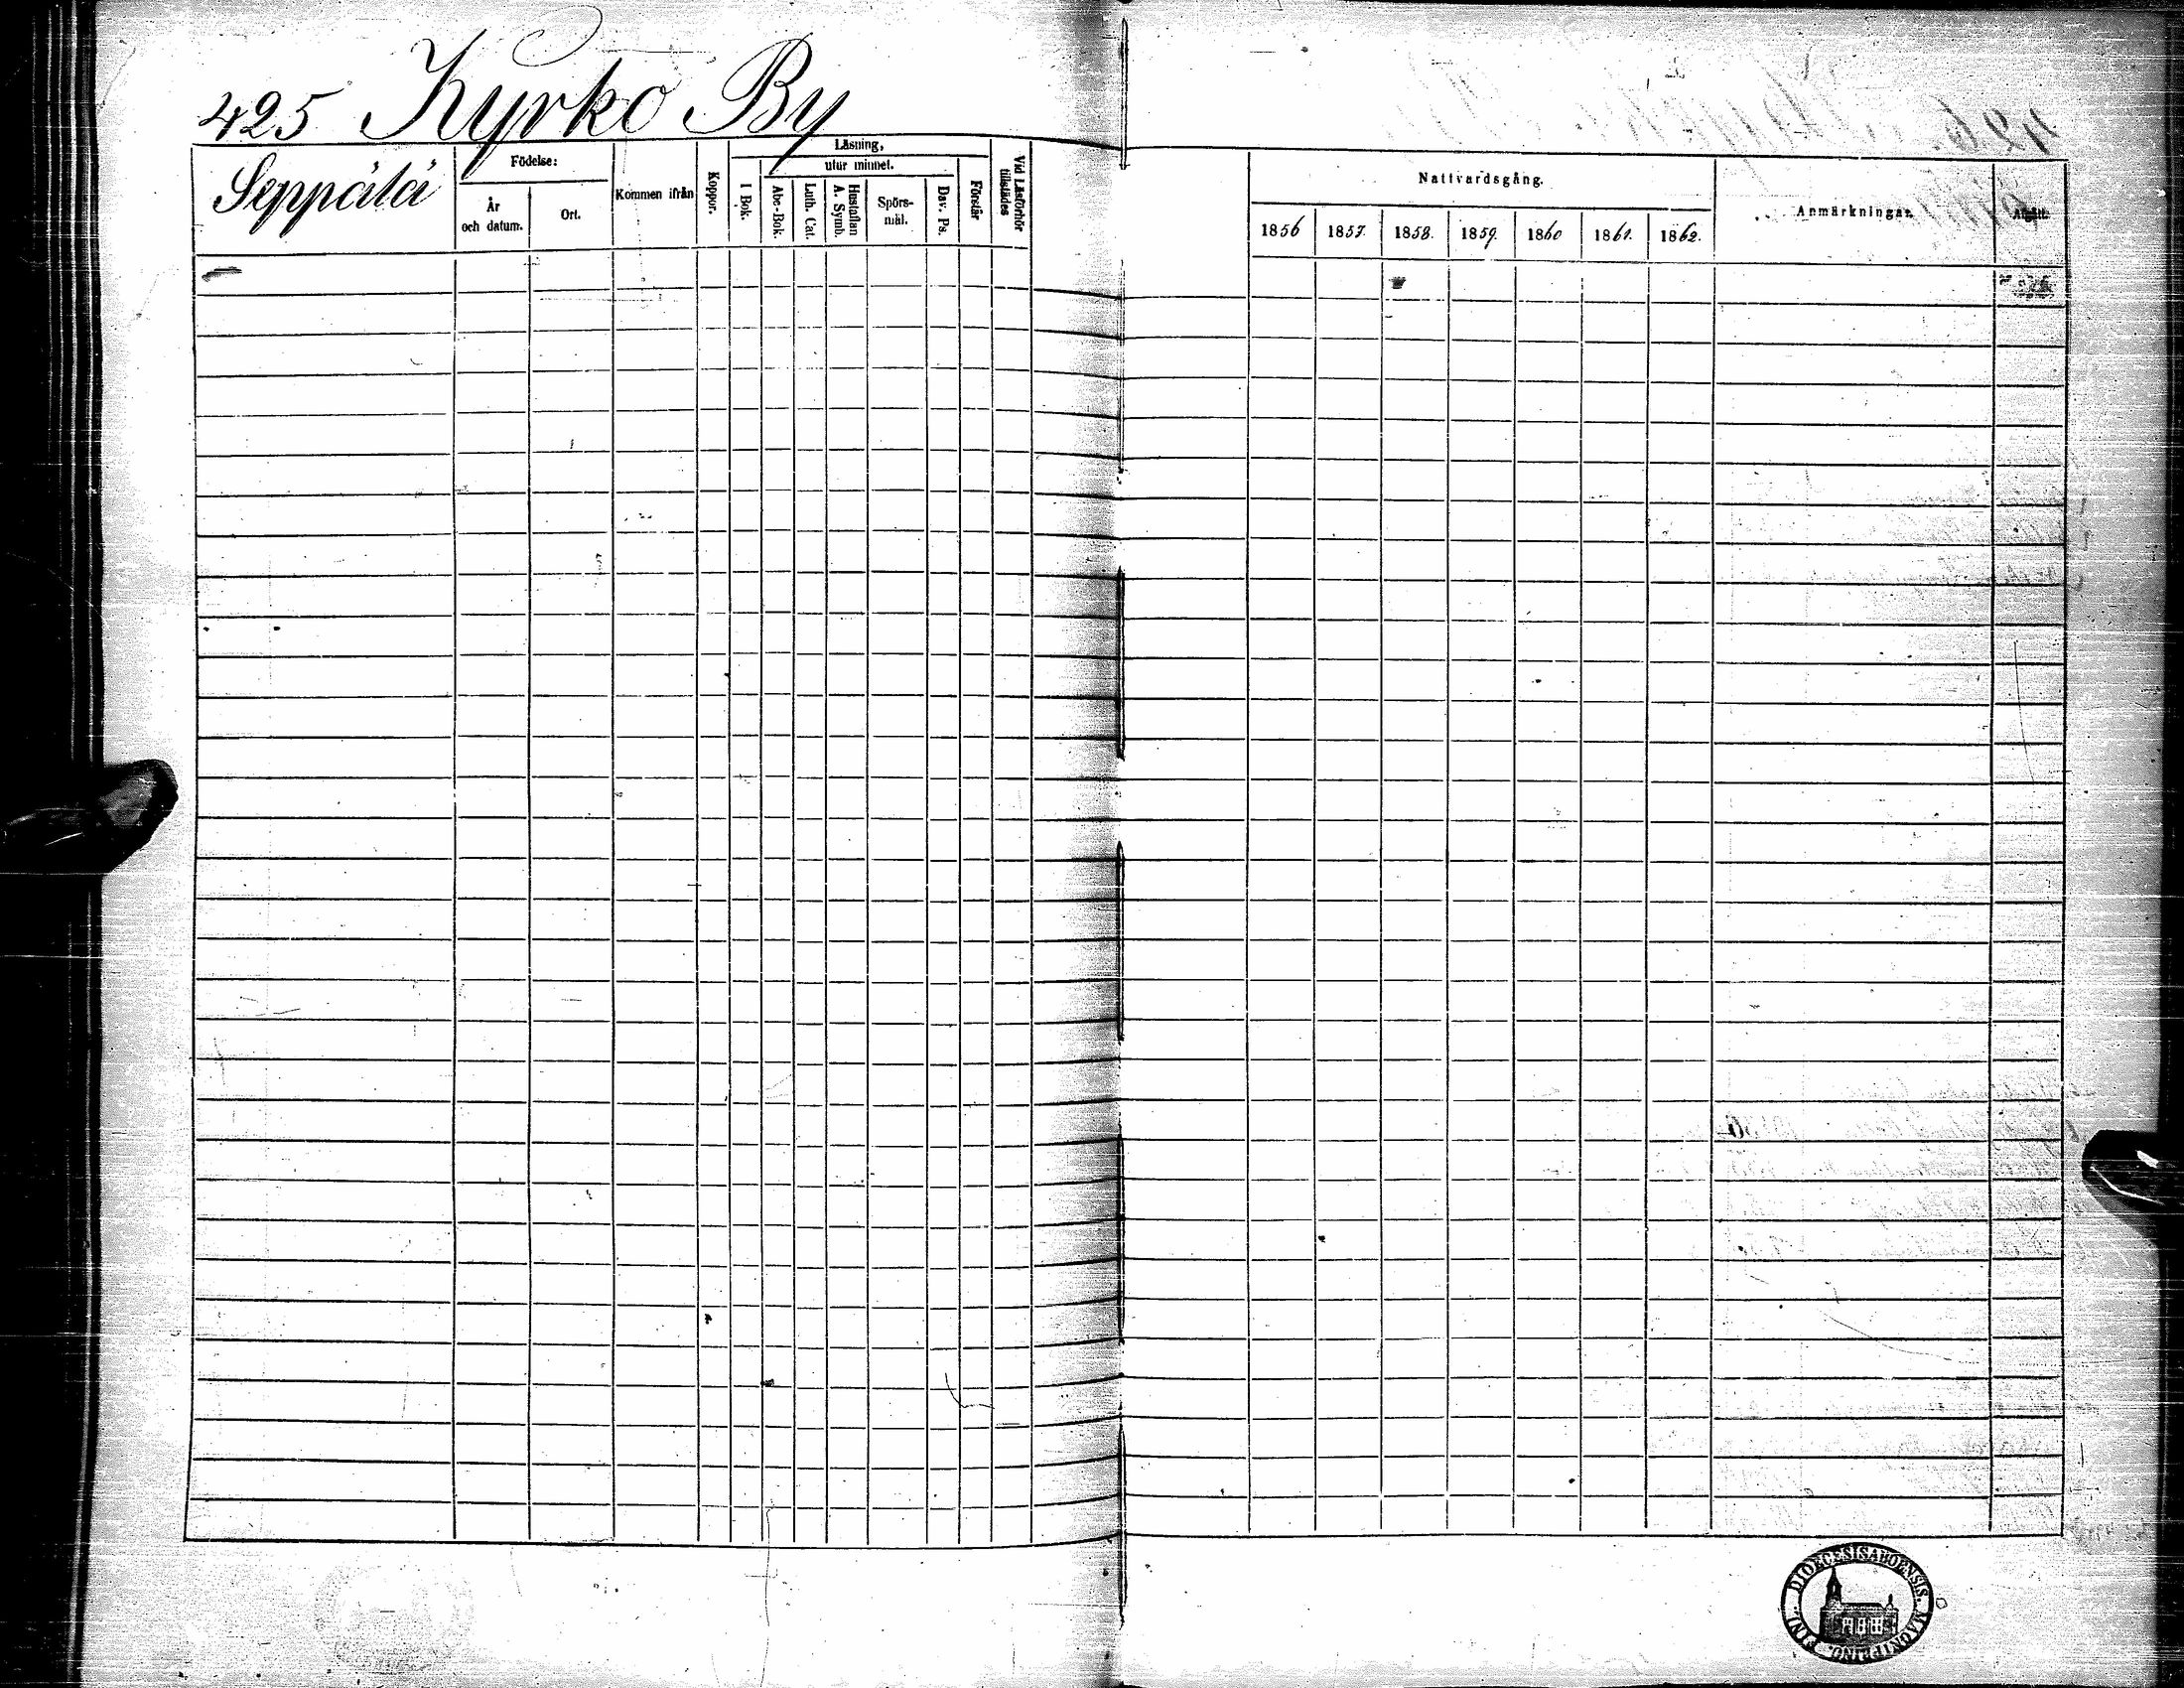 425 Kyrko By
Seppälä
Födelse:
År
och datum.
Ort.
Kommen ifrån
Koppor.
Läsning,
utur minnet.
I Bok.
Abc-Bok.
Luth. Cat.
Hustaflan
A. Symb.
Spörs-
mål.
Dav. Ps.
Förstår
Vid Läsförhör
tillstädes
Nattvardsgång.
1856 1857. 1858. 1859. 1860 1861. 1862.
Anmärkningar.
DIOECESIS ABOENSIS. MAGNI PRINC. FINL.